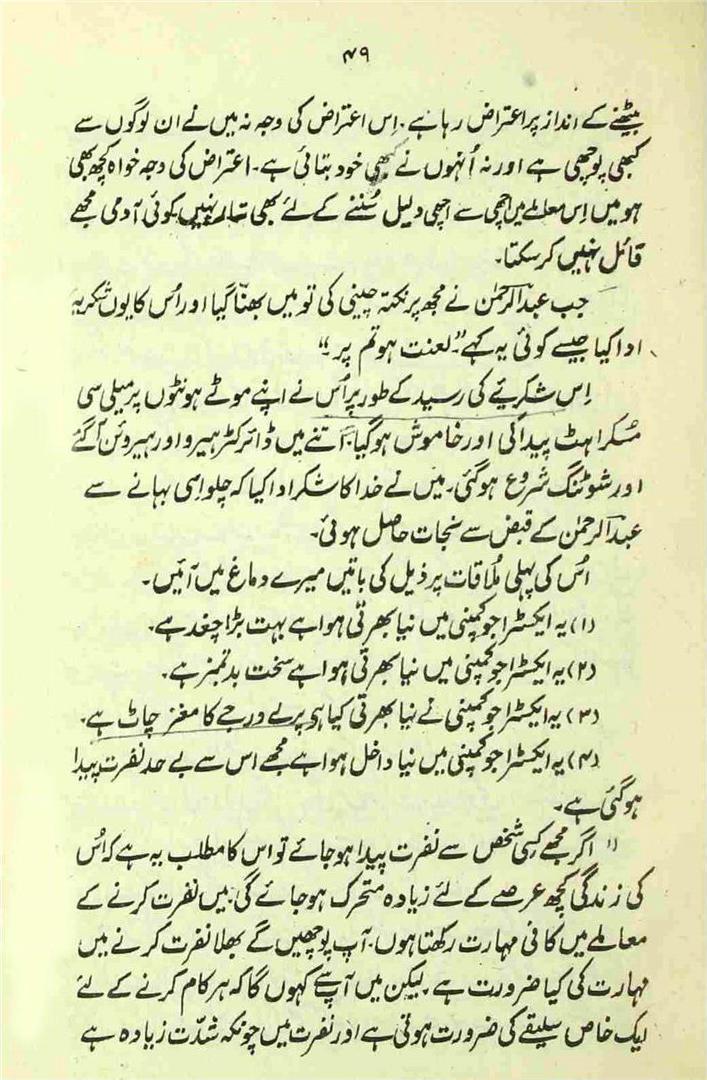 ۴۹
بیٹھنے کے انداز پر اعتراض رہا ہے۔ اِس اعتراض کی وجہ نہ میں نے ان لوگوں سے
کبھی پوچھی ہے اور نہ اُنہوں نے کبھی خود بتائی ہے۔ اعتراض کی وجہ خواہ کچھ بھی
ہو میں اِس معاملے میں اچھی سے اچھی دلیل سُننے کے لئے بھی تیار نہیں کوئی آدمی مجھے
قائل نہیں کر سکتا۔
جب عبدالرحمٰن نے مجھ پر نکتہ چینی کی تو میں بھنّا گیا اور اُس کا یوں شکریہ
ادا کیا جیسے کوئی یہ کہے ”لعنت ہو تم پر“
اِس شکریئے کی رسید کے طور پر اُس نے اپنے موٹے ہونٹوں پر میلی سی
مُسکراہٹ پیدا کی اور خاموش ہو گیا۔ اتنے میں ڈائرکٹر ہیرو اور ہیروئن آ گئے
اور شوٹنگ شروع ہو گئی۔ میں نے خدا کا شکر ادا کیا کہ چلو اِسی بہانے سے
عبدالرحمٰن کے قبض سے نجات حاصل ہوئی۔
اُس کی پہلی مُلاقات پر ذیل کی باتیں میرے دماغ میں آئیں۔
(۱) یہ ایکسٹرا جو کمپنی میں نیا بھرتی ہوا ہے بہت بڑا چغد ہے۔
(۲) یہ ایکسٹرا جو کمپنی میں نیا بھرتی ہوا ہے سخت بدتمیز ہے۔
(۳) یہ ایکسٹرا جو کمپنی نے نیا بھرتی کیا ہی پرلے درجے کا مغز چاٹ ہے۔
(۴) یہ ایکسٹرا جو کمپنی میں نیا داخل ہوا ہے مجھے اس سے بے حد نفرت پیدا
ہو گئی ہے۔
" اگر مجھے کِسی شخص سے نفرت پیدا ہو جائے تو اس کا مطلب یہ ہے کہ اُس
کی زندگی کچھ عرصے کے لئے زیادہ متحرک ہو جائے گی۔ میں نفرت کرنے کے
معاملے میں کافی مہارت رکھتا ہوں۔ آپ پوچھیں گے بھلا نفرت کرنے میں
مہارت کی کیا ضرورت ہے۔ لیکن میں آپ سے کہوں گا کہ ہر کام کرنے کے لئے
ایک خاص سلیقے کی ضرورت ہوتی ہے اور نفرت میں چونکہ شدّت زیادہ ہے